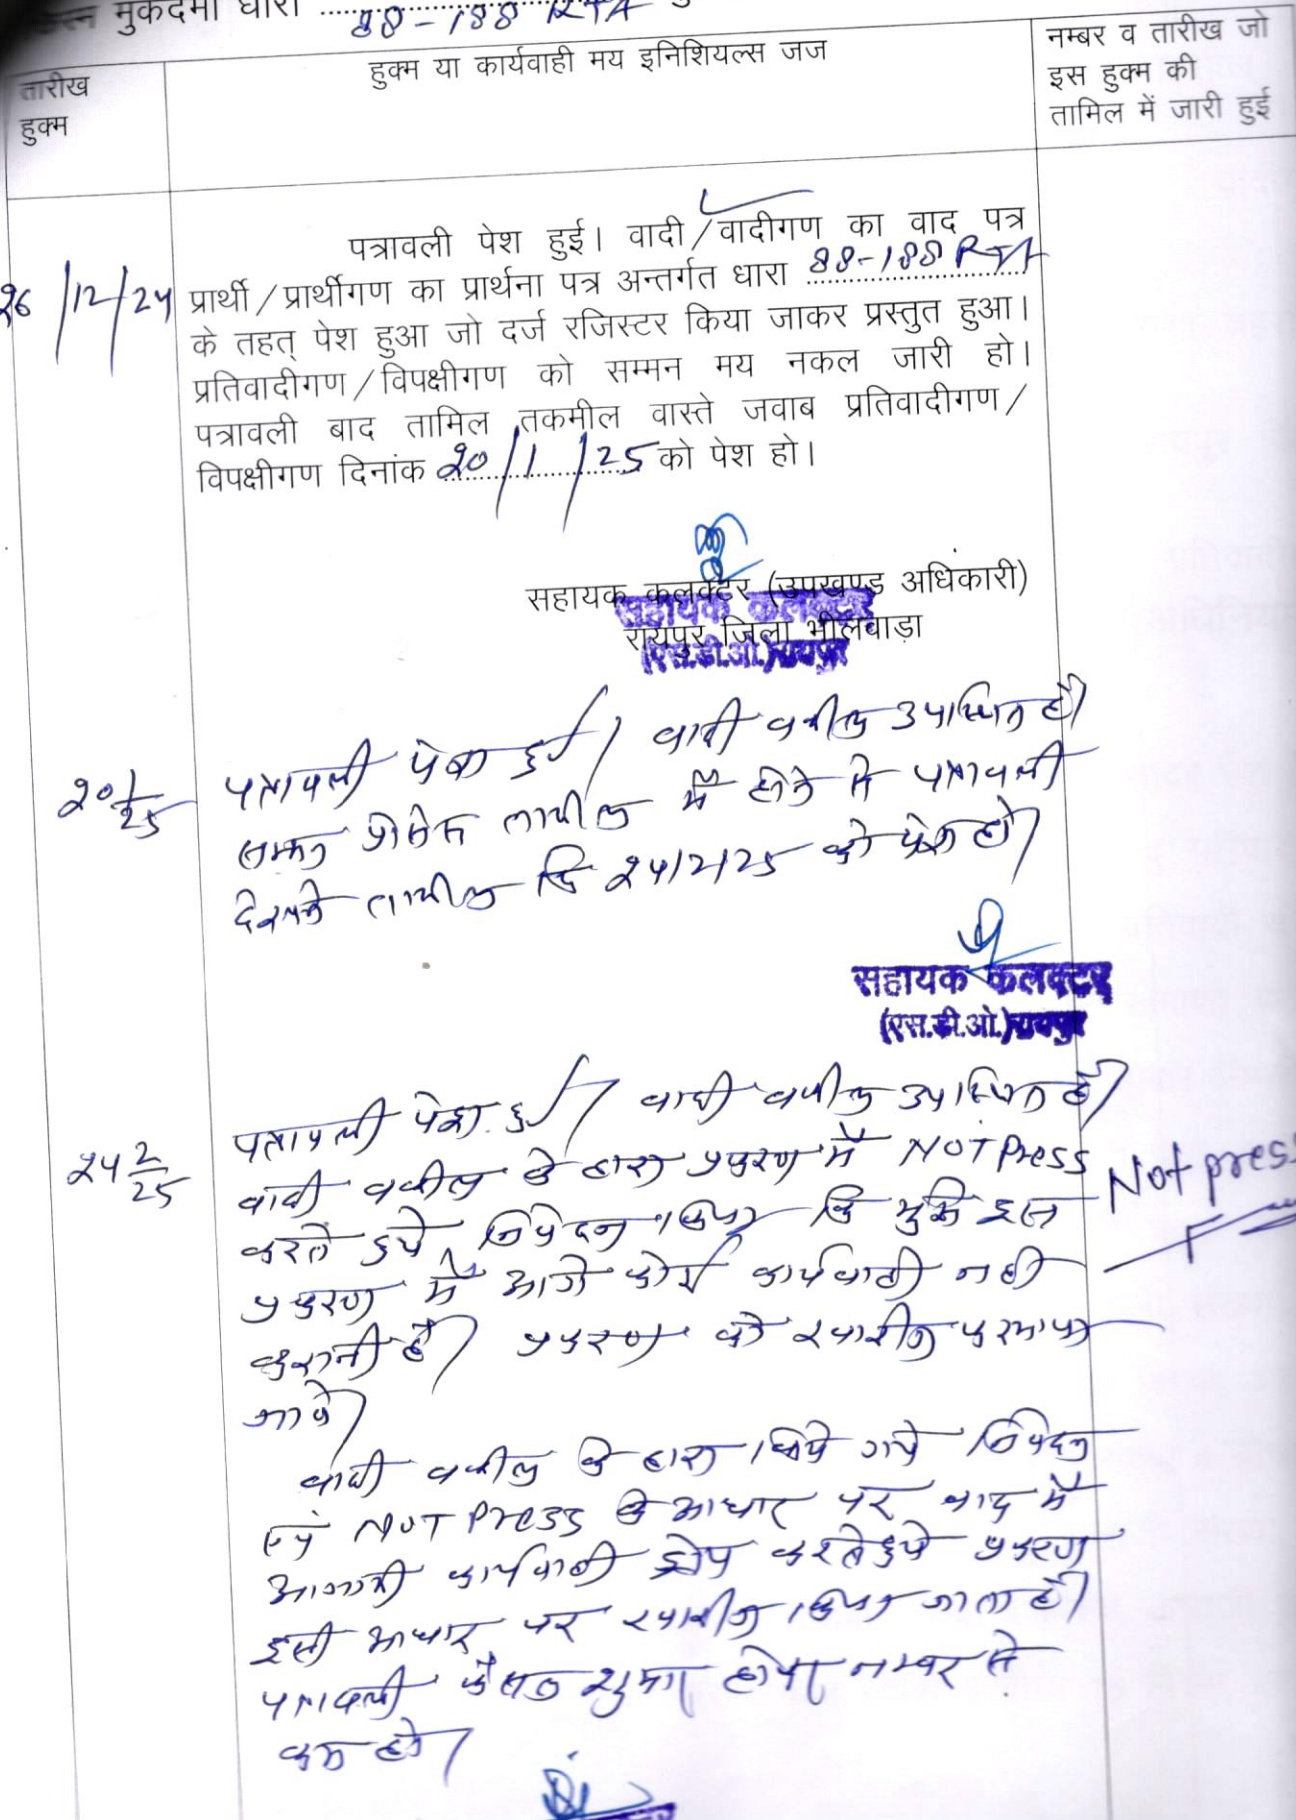 मुकदमा धारा 88-188 RTA
तारीख
हुक्म
हुक्म या कार्यवाही मय इनिशियल्स जज
नम्बर व तारीख जो
इस हुक्म की
तामिल में जारी हुई
26/12/24
पत्रावली पेश हुई। वादी/वादीगण का वाद पत्र
प्रार्थी/प्रार्थीगण का प्रार्थना पत्र अन्तर्गत धारा 88-188 RTA
के तहत् पेश हुआ जो दर्ज रजिस्टर किया जाकर प्रस्तुत हुआ।
प्रतिवादीगण/विपक्षीगण को सम्मन मय नकल जारी हो।
पत्रावली बाद तामिल तकमील वास्ते जवाब प्रतिवादीगण/
विपक्षीगण दिनांक 20/1/25 को पेश हो।
सहायक कलक्टर (उपखण्ड अधिकारी)
रायपुर जिला भीलवाड़ा
सहायक कलक्टर
(एस.डी.ओ.) रायपुर
20/1/25
पत्रावली पेश हुई। वादी वकील उपस्थित है।
सम्मन तामील में होने से पत्रावली
तामील दि 24/2/25 को पेश हो।
सहायक कलक्टर
(एस.डी.ओ.) रायपुर
24 2/25
पत्रावली पेश हुई। वादी वकील उपस्थित है।
वादी वकील के द्वारा प्रकरण में NOT Press
करते हुये निवेदन किया कि मुझे इस
प्रकरण में आगे कोई कार्यवाही नही
करानी है। प्रकरण को खारीज फरमाया
जावे।
Not press
वादी वकील के द्वारा किये गये निवेदन
एवं NOT Press के आधार पर वाद में
आगामी कार्यवाही ड्रोप करते हुये प्रकरण
इसी आधार पर खारीज किया जाता है।
पत्रावली फैसल शुमार होकर नम्बर से
कम हो।